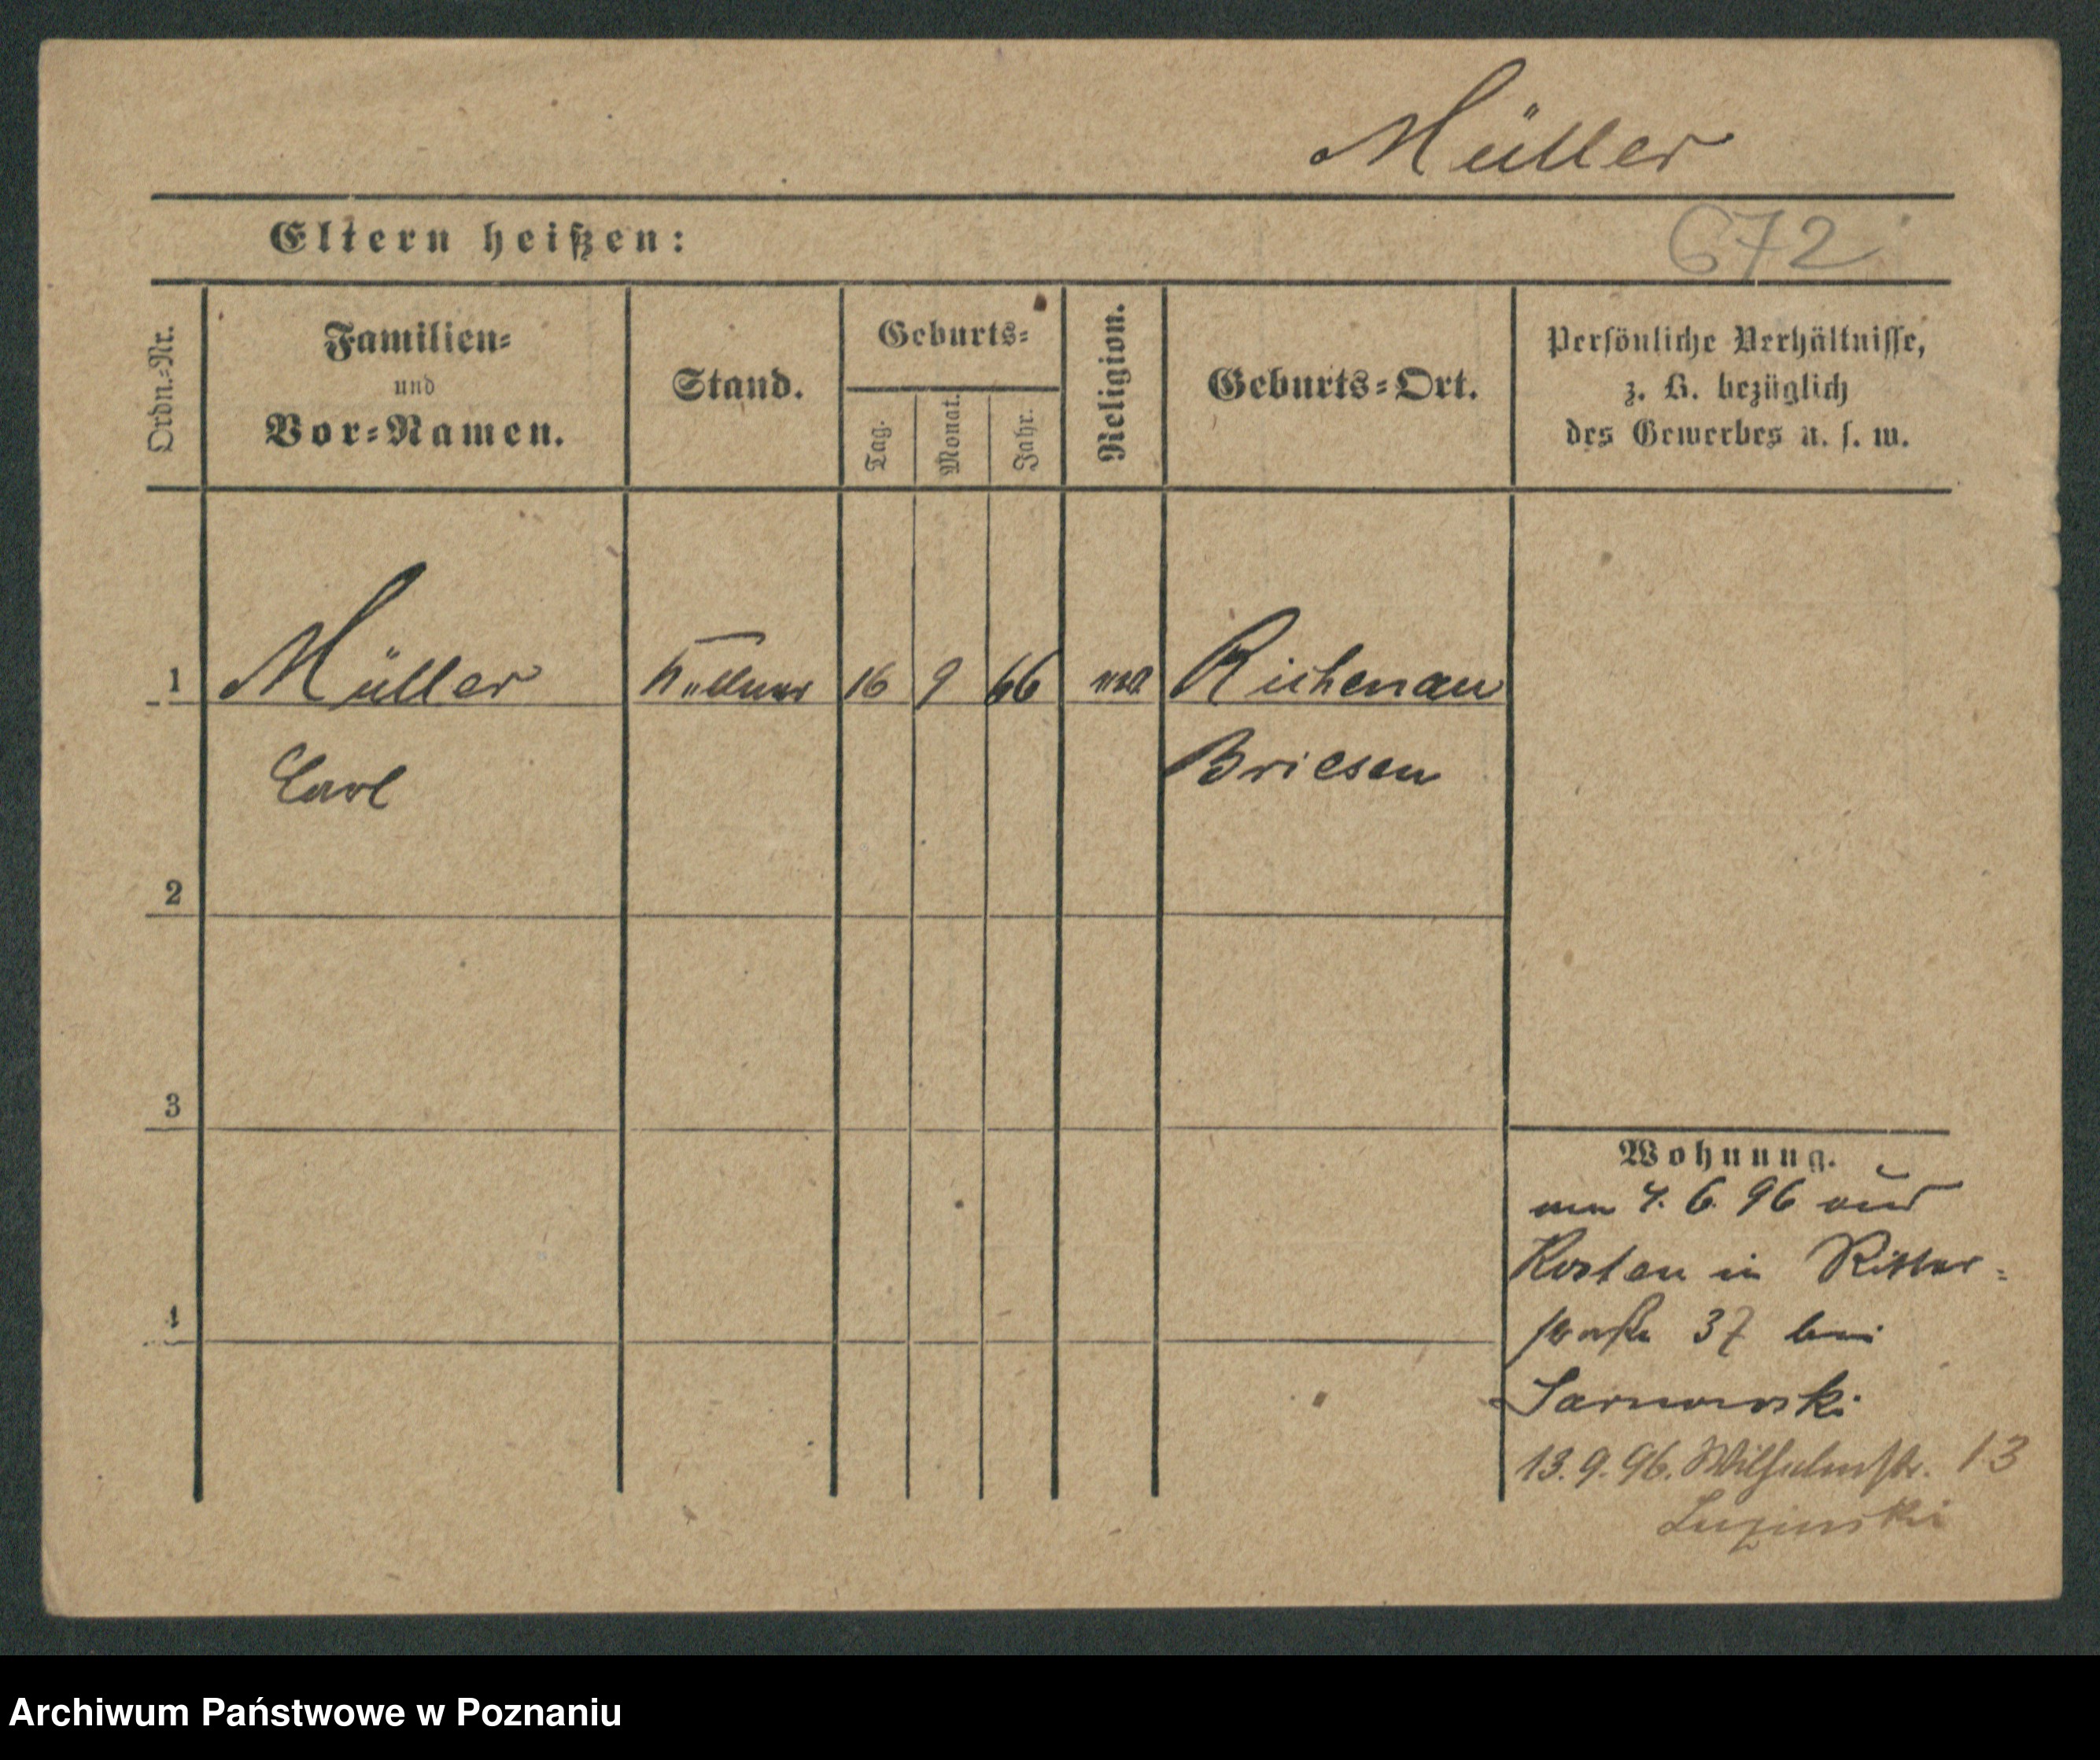 Müller
Eltern heißen:
672
Ordn.=Nr.
Familien=
und
Vor=Namen.
Stand.
Geburts=
Tag.
Monat.
Jahr.
Religion.
Geburts=Ort.
Persönliche Verhältnisse,
z. B. bezüglich
des Gewerbes u. s. w.
1 Müller Kellner 16 9 66 Richenau
Carl Briesen
2
3
4
Wohnung.
6. 96 aus
Kosten in Ritter=
straße 37 bei
Sarnowski
13. 9. 96. Wilhelmstr. 13
Archiwum Państwowe w Poznaniu